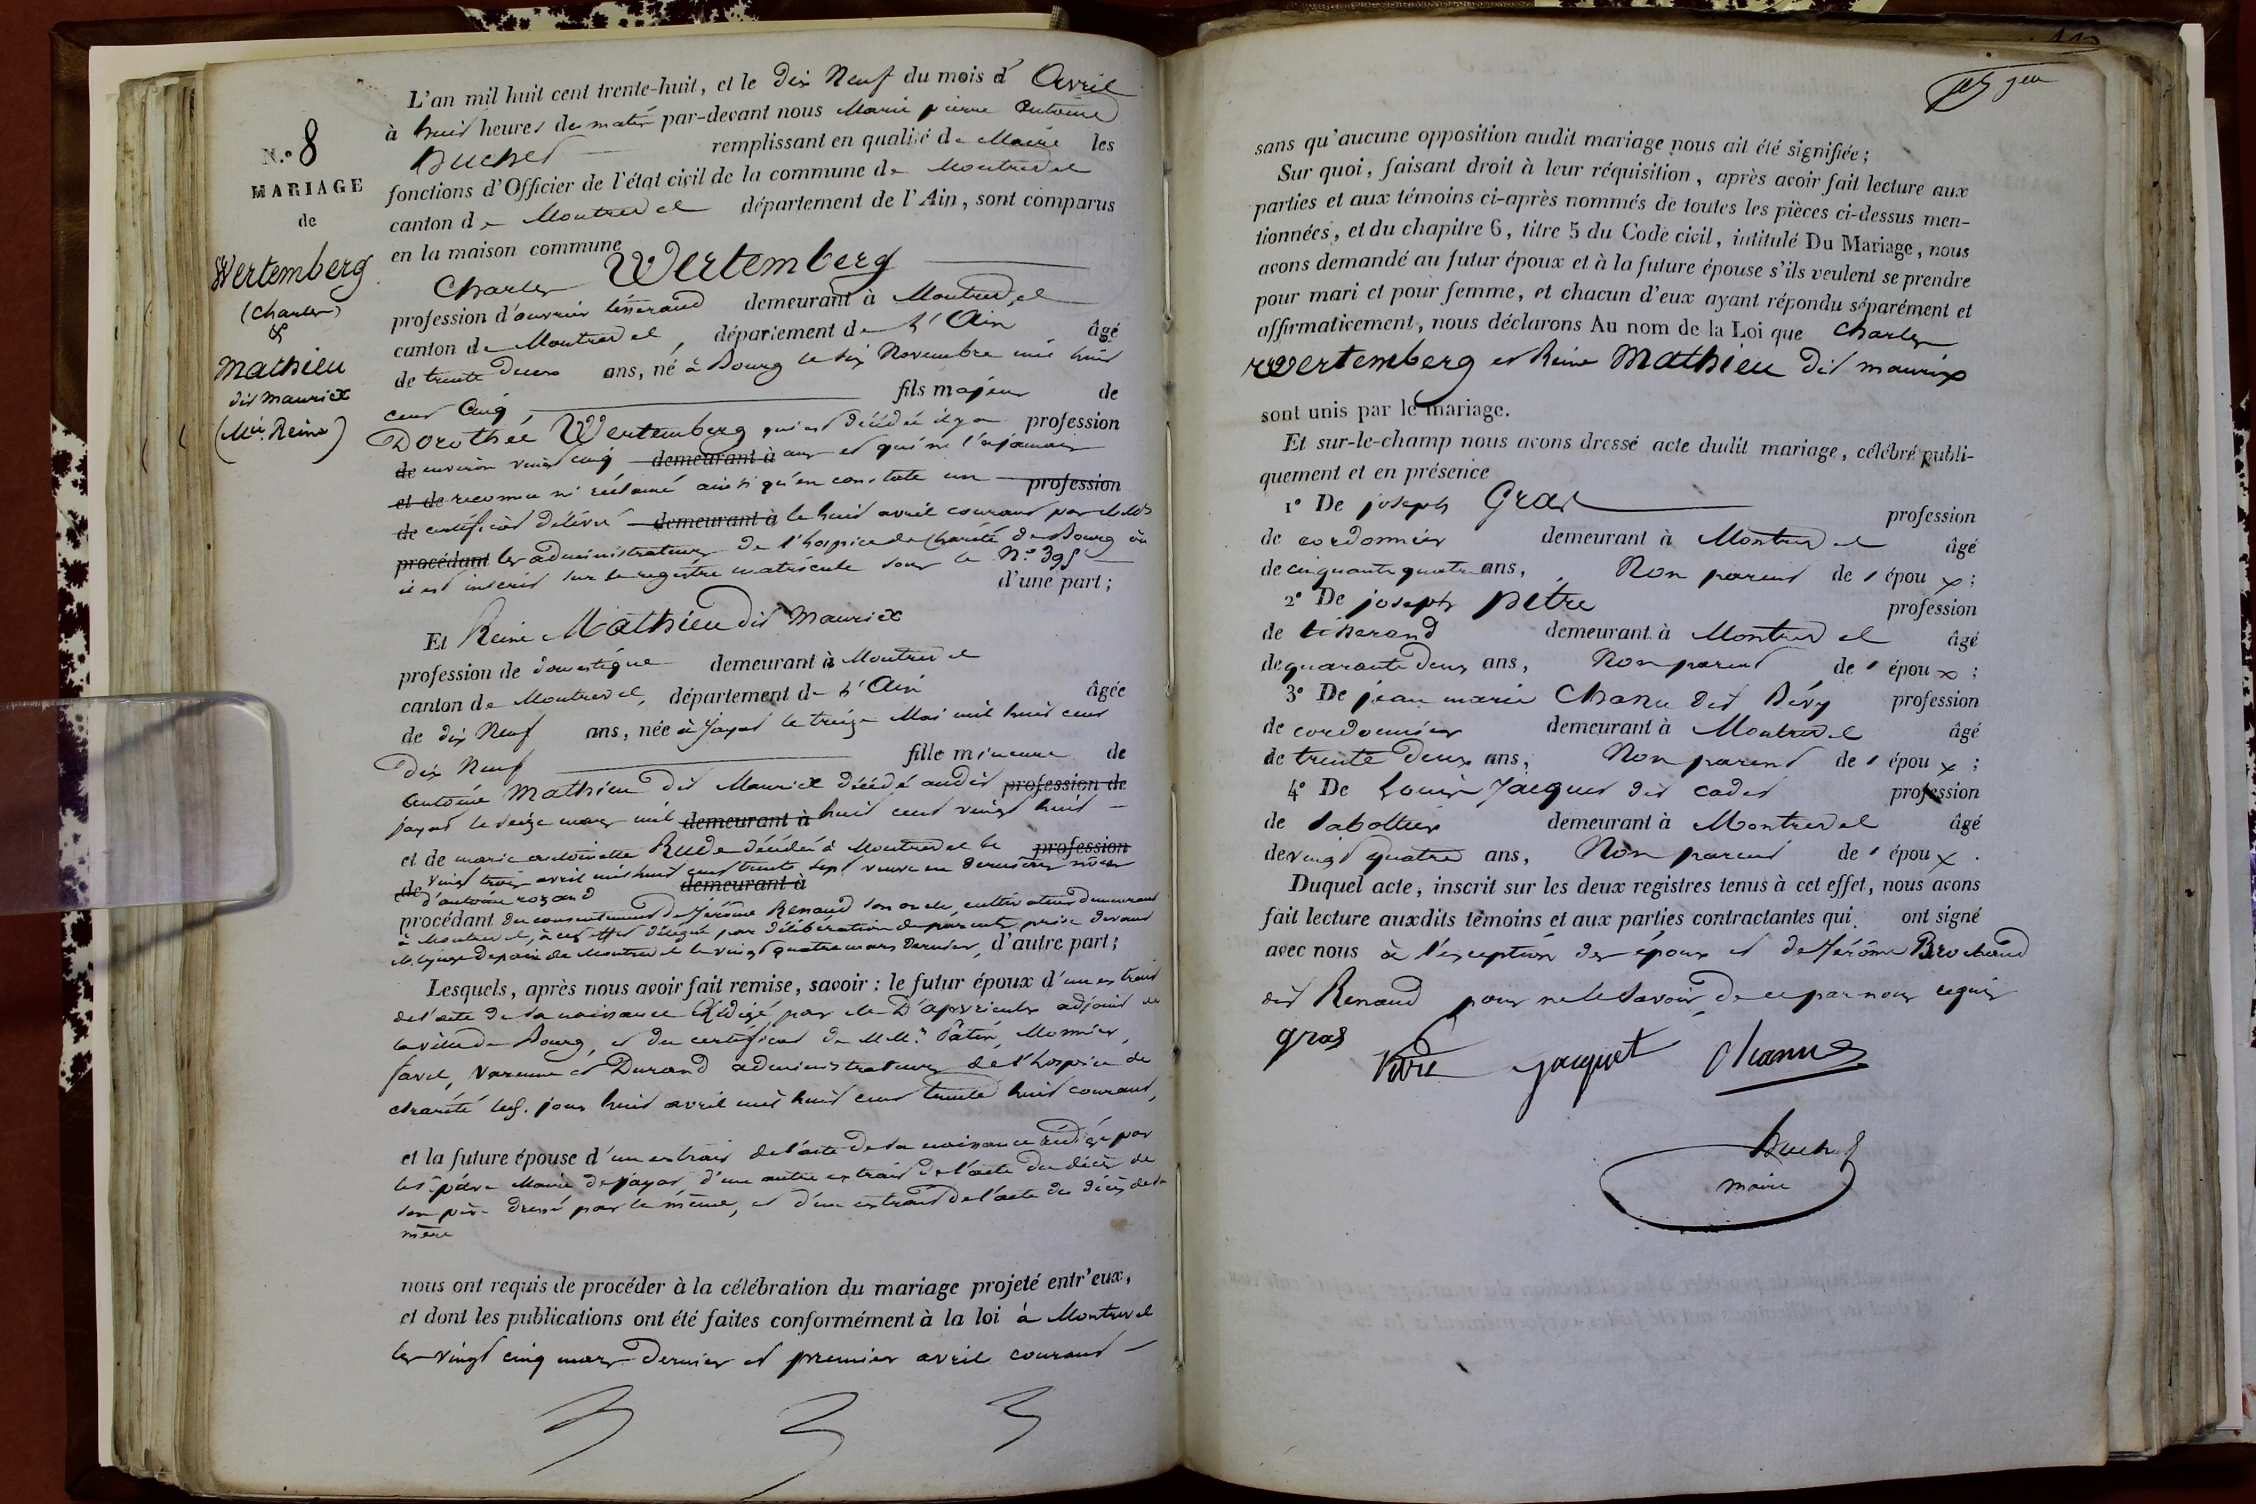 N.° 8
MARIAGE
de
Wertemberg
(Charles)
&
Mathieu
dit Mauriex
(Mie. Reine)
L'an mil huit cent trente-huit, et le dix Neuf du mois d' Avril
à huit heures du matin par-devant nous Marie pierre Antoine
Buchet remplissant en qualité de Maire les
fonctions d'Officier de l'état civil de la commune de Montrevel
canton de Montrevel département de l'Ain, sont comparus
en la maison commune
Charles Wertemberg
profession d'ouvrier tisserand demeurant à Montrevel
canton de Montrevel, département de l'Ain âgé
de trente deux ans, né à Bourg le dix Novembre mil huit
cent Cinq, fils majeur de
Dorothée Wertemberg qui est décédée il y a profession
de environ vingt cinq demeurant à ans et qui ne l'a jamais
et de reconnu ni réclamé ainsi qu'en constate un profession
de certificat délivré demeurant à le huit avril courant par M.Mrs
procédant les administrateurs de l'hospice de Charité de Bourg où
il est inscrit sur le registre matricule sous le N.° 395
d'une part;
Et Reine Mathieu dit Mauriex
profession de domestique demeurant à Montrevel
canton de Montrevel, département de l'Ain âgée
de dix Neuf ans, née à Jayat le treize Mai mil huit cent
dix Neuf fille mineure de
Antoine Mathieu dit Mauriex décédé audit profession de
jayat le seize mars mil demeurant à huit cent vingt huit
et de marie antoinette Rude décédée à Montrevel le profession
de vingt trois avril mil huit cent trente sept veuve en dernières noces
d'antoine rozand demeurant à
procédant du consentement de Jérôme Renaud son oncle, cultivateur demeurant
à Montrevel, à cet effet délégué par délibération de parents prise devant
M. le juge de paix de Montrevel le vingt quatre mars dernier, d'autre part;
Lesquels, après nous avoir fait remise, savoir : le futur époux d'un extrait
de l'acte de sa naissance rédigé par Mr D'apvrieulx adjoint de
la ville de Bourg, et du certificat de M.Mrs Pâtin, Monnier,
favel, Varenne et Durand administrateurs de l'hospice de
charité sus. jour huit avril mil huit cent trente huit courant,
et la future épouse d'un extrait de l'acte de sa naissance rédigé par
Maire de jayat d'un autre extrait de l'acte du décès de
son père dressé par le même, et d'un extrait de l'acte du décès de sa
mère
nous ont requis de procéder à la célébration du mariage projeté entr'eux,
et dont les publications ont été faites conformément à la loi à Montrevel
les vingt cinq mars dernier et premier avril courant
sans qu'aucune opposition audit mariage nous ait été signifiée;
Sur quoi, faisant droit à leur réquisition, après avoir fait lecture aux
parties et aux témoins ci-après nommés de toutes les pièces ci-dessus men-
tionnées, et du chapitre 6, titre 5 du Code civil, intitulé Du Mariage, nous
avons demandé au futur époux et à la future épouse s'ils veulent se prendre
pour mari et pour femme, et chacun d'eux ayant répondu séparément et
affirmativement, nous déclarons Au nom de la Loi que Charles
Wertemberg et Reine Mathieu dit mauriex
sont unis par le mariage.
Et sur-le-champ nous avons dressé acte dudit mariage, célébré publi-
quement et en présence
1° De joseph Gras profession
de cordonnier demeurant à Montrevel âgé
de cinquante quatre ans, Non parent de s époux;
2° De joseph petre profession
de tisserand demeurant à Montrevel âgé
de quarante deux ans, Non parent de s époux;
3° De jean marie Chanu dit Révy profession
de cordonnier demeurant à Montrevel âgé
de trente deux ans, Non parent de s époux;
4° De Louis Jacquet dit cadet profession
de sabottier demeurant à Montrevel âgé
de vingt quatre ans, Non parent de s époux.
Duquel acte, inscrit sur les deux registres tenus à cet effet, nous avons
fait lecture auxdits témoins et aux parties contractantes qui ont signé
avec nous à l'exception des époux et de Jérôme Brochand
dit Renaud pour ne le savoir, de ce par nous requis
gras
Petre jacquet Chanu
Buchet
maire